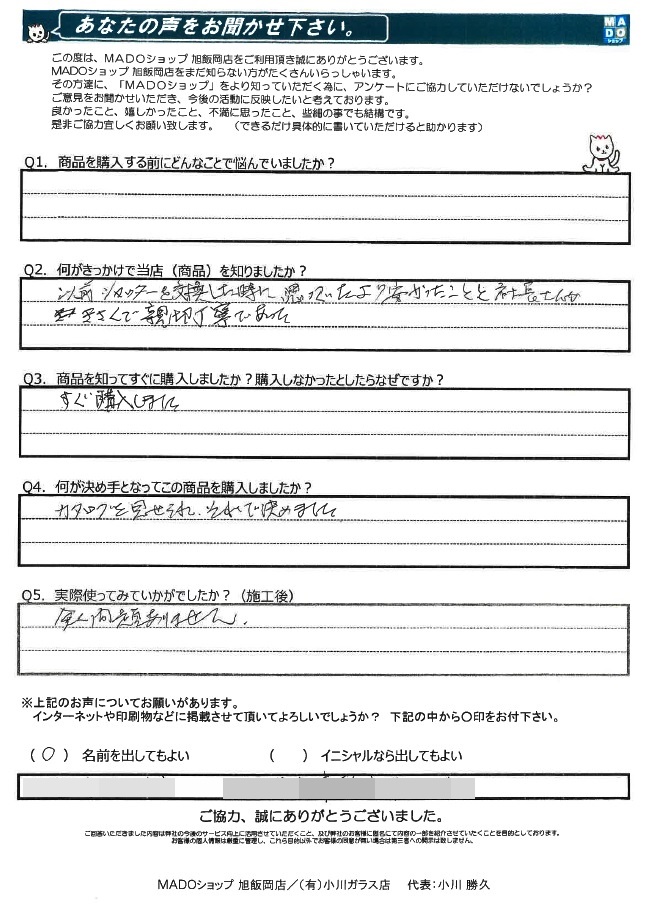 あなたの声をお聞かせ下さい。
MADO
ショップ
この度は、MADOショップ 旭飯岡店をご利用頂き誠にありがとうございます。
MADOショップ 旭飯岡店をまだ知らない方がたくさんいらっしゃいます。
その方達に、「MADOショップ」をより知っていただく為に、アンケートにご協力していただけないでしょうか?
ご意見をお聞かせいただき、今後の活動に反映したいと考えております。
良かったこと、嬉しかったこと、不満に思ったこと、些細の事でも結構です。
是非ご協力宜しくお願い致します。 (できるだけ具体的に書いていただけると助かります)
Q1. 商品を購入する前にどんなことで悩んでいましたか?
Q2. 何がきっかけで当店(商品)を知りましたか?
以前シャッターを交換した時に、思っていたより安かったことと社長さんが
きさくで親切丁寧であった
Q3. 商品を知ってすぐに購入しましたか?購入しなかったとしたらなぜですか?
すぐ購入しました
Q4. 何が決め手となってこの商品を購入しましたか?
カタログを見せられ、それで決めました
Q5. 実際使ってみていかがでしたか?(施工後)
全く問題ありません。
※上記のお声についてお願いがあります。
インターネットや印刷物などに掲載させて頂いてよろしいでしょうか? 下記の中から〇印をお付下さい。
(〇) 名前を出してもよい ( ) イニシャルなら出してもよい
ご協力、誠にありがとうございました。
ご回答いただきました内容は弊社の今後のサービス向上に活用させていただくこと、及び弊社のお客様に匿名にて内容の一部を紹介させていくことを目的としております。
お客様の個人情報は厳重に管理し、これら目的以外でお客様の同意が無い場合は第三者への開示は致しません。
MADOショップ 旭飯岡店/(有)小川ガラス店 代表:小川 勝久